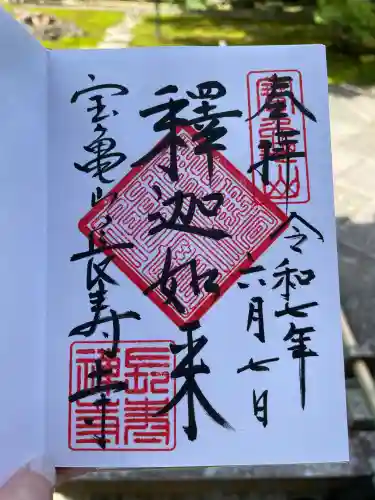 奉拝
令和七年
六月七日
釋迦如来
宝亀山長寿寺
長壽禅寺